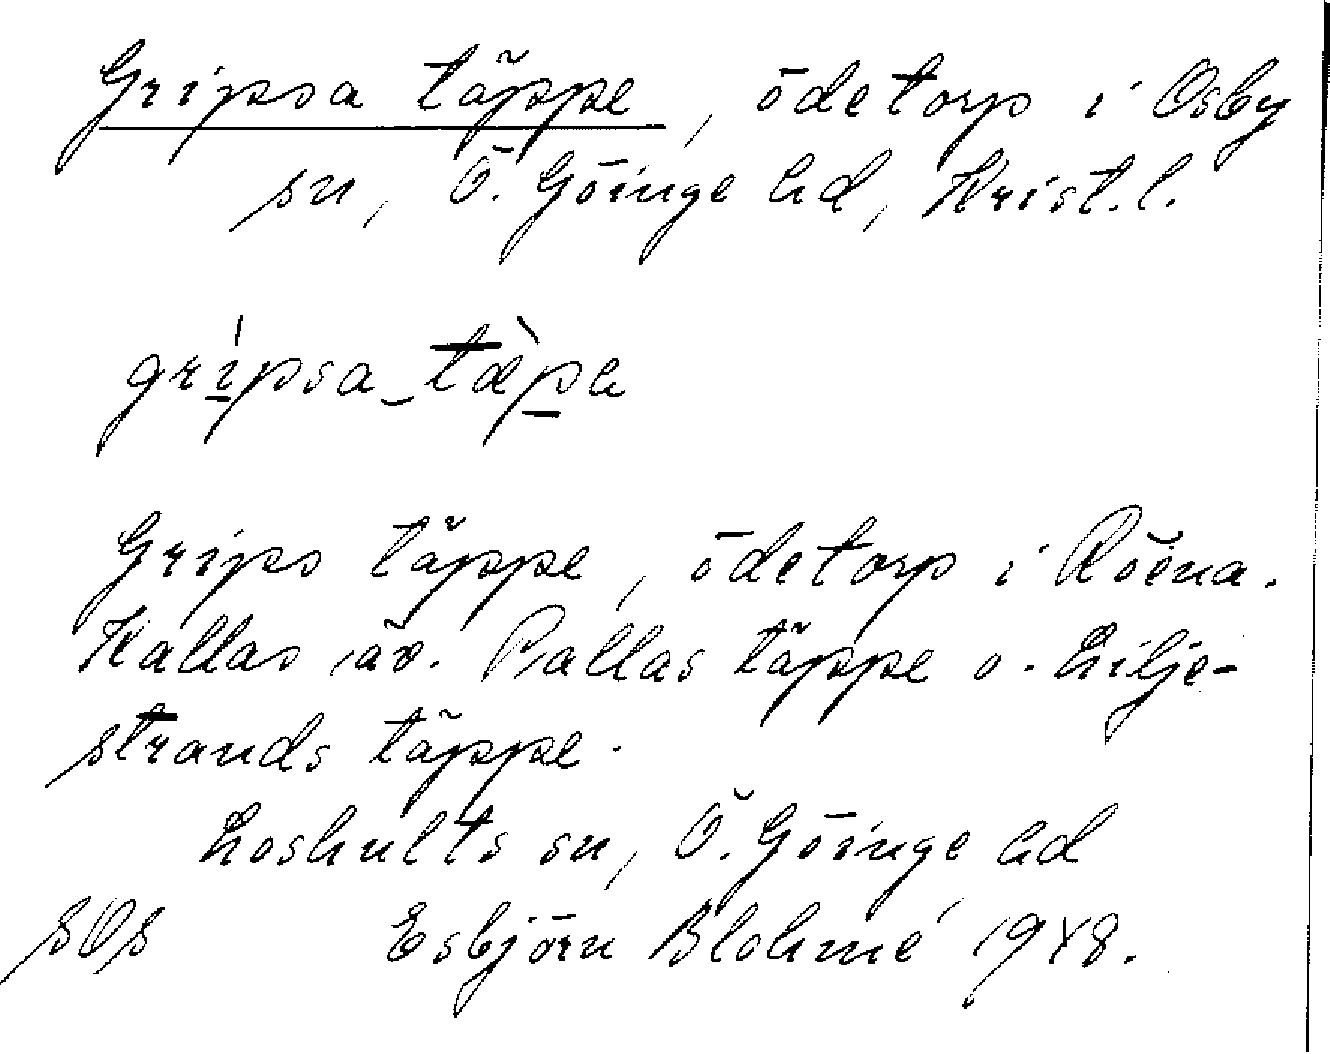 Gripsa täppe, ödetorp i Osby
sn, Ö. Göinge hd, Krist.l.
grípsa_tæ̀pe
Grips täppe, ödetorp i Röena.
Kallas äv. Pallas täppe o. Lilje-
strands täppe.
Loshults sn, Ö. Göinge hd
SOs Esbjörn Blohmé 1948.